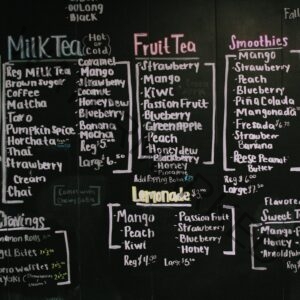 OOLONG
Black
Fall
Milk Tea (Hot or Cold)
Reg Milk Tea
Brown Sugar
Coffee
Matcha
Taro
Pumpkin Spice
Horchata
Thai
Strawberry
Cream
Chai
Caramel
Mango
Strawberry
Coconut
Honeydew
Blueberry
Banana
Mocha
Reg $5
Large $6.50
Fruit Tea
Strawberry
Mango
Kiwi
Passion Fruit
Blueberry
Green apple
Peach
Honeydew
Blackberry
Honey
Add Popping Boba
Smoothies
Mango
Strawberry
Peach
Blueberry
Piña Colada
Mangonada
Fresada
Strawberry
Banana
Reese Peanut
Butter
Reg $6
Large
Lemonade
Mango
Peach
Kiwi
Passion Fruit
Strawberry
Blueberry
Honey
Reg $4.50
Large $5
Cravings
Flavored
Sweet T
Mango
Honey
Arnold
Reg